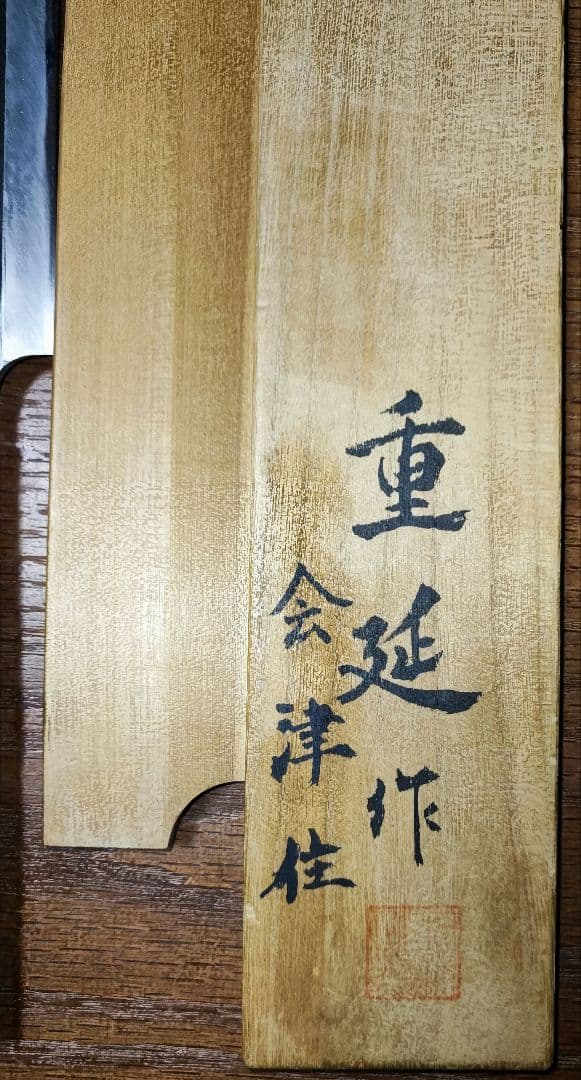 重延作
会津住